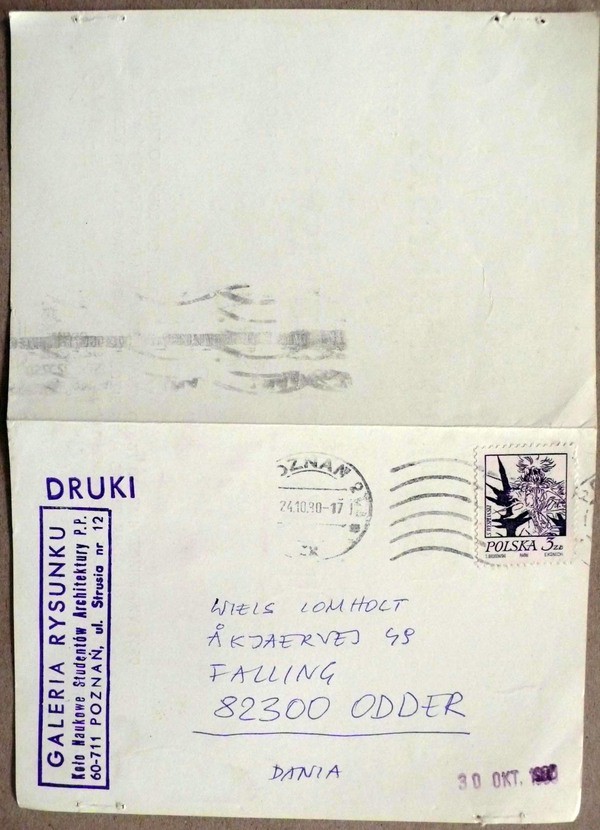 DRUKI
GALERIA RYSUNKU
Koło Naukowe Studentów Architektury P.P.
60-711 POZNAŃ, ul. Strusia nr 12
POZNAŃ
24.10.80-17
POLSKA 3 ZŁ
WIELS LOMHOLT
ÅKJAERVEJ 49
FALLING
82300 ODDER
DANIA
30 OKT. 1980